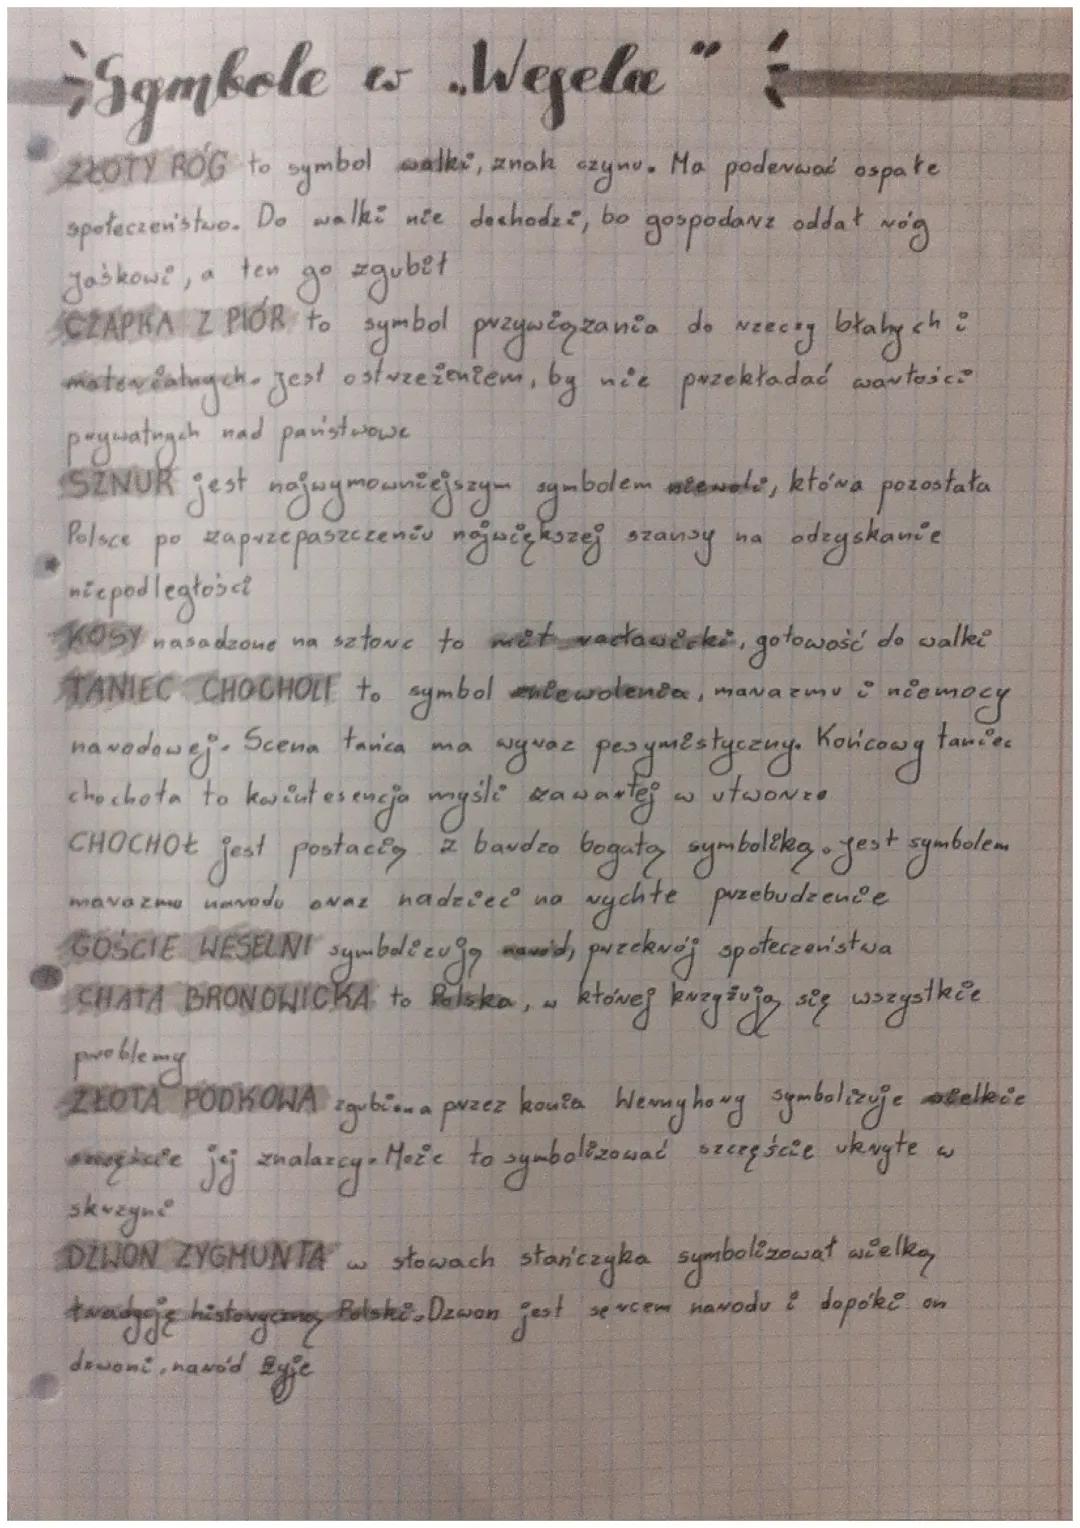 Symbole w „Weselu"
ZŁOTY RÓG to symbol walki, znak czynu. Ma poderwać ospałe
społeczeństwo. Do walki nie dochodzi, bo gospodarz oddał róg
Jaśkowi, a ten go zgubił
CZAPKA Z PIÓR to symbol przywiązania do rzeczy błahych i
materialnych. Jest ostrzeżeniem, by nie przekładać wartości
prywatnych nad państwowe
SZNUR jest najwymowniejszym symbolem niewoli, która pozostała
Polsce po zaprzepaszczeniu największej szansy na odzyskanie
niepodległości
KOSY nasadzone na sztorc to mit racławicki, gotowość do walki
TANIEC CHOCHOLI to symbol zniewolenia, marazmu i niemocy
narodowej. Scena tańca ma wyraz pesymistyczny. Końcowy taniec
chochoła to kwintesencja myśli zawartej w utworze
CHOCHOŁ jest postacią z bardzo bogatą symboliką. Jest symbolem
marazmu narodu oraz nadziei na rychłe przebudzenie
GOŚCIE WESELNI symbolizują naród, przekrój społeczeństwa
CHATA BRONOWICKA to Polska, w której krzyżują się wszystkie
problemy
ZŁOTA PODKOWA zgubiona przez konia Wernyhory symbolizuje wielkie
szczęście jej znalazcy. Może to symbolizować szczęście ukryte w
skrzyni
DZWON ZYGMUNTA w słowach stańczyka symbolizował wielką
tradycję historyczną Polski. Dzwon jest sercem narodu i dopóki on
dzwoni, naród żyje